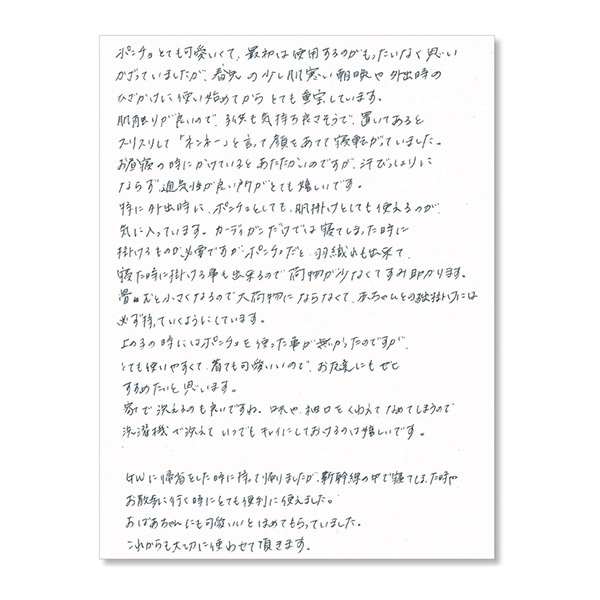 ポンチョとても可愛いくて、最初は使用するのがもったいなく思い
かざっていましたが、春先の少し肌寒い朝晩や外出時の
ひざかけに使い始めてからとても重宝しています。
肌触りが良いので、子供も気持ち良さそうで、置いてあると
スリスリして「ネンネー」と言って顔をあてて寝転がっていました。
お昼寝の時にかけているとあたたかいのですが、汗びっしょりに
ならず通気性が良い所がとても嬉しいです。
特に外出時に、ポンチョとしても、肌掛けとしても使えるのが、
気に入っています。カーディガンだけでは寝てしまった時に
掛けるものが必要ですがポンチョだと、羽織れも出来て、
寝た時に掛ける事も出来るので荷物が少なくてすみ助かります。
畳むと小さくなるので大荷物にならなくて、赤ちゃんとのお出掛けには
必ず持っていくようにしています。
上の子の時にはポンチョを使った事が無かったのですが、
とても使いやすくて、着ても可愛いいので、お友達にもぜひ
すすめたいと思います。
家で洗えるのも良いですね。口元や袖口をくわえてなめてしまうので
洗濯機で洗えていつでもキレイにしておけるのは嬉しいです。
GWに帰省をした時に持って帰りましたが、新幹線の中で寝てしまった時や
お散歩に行く時にとても便利に使えました。
おばあちゃんにも可愛いいとほめてもらっていました。
これからも大切に使わせて頂きます。